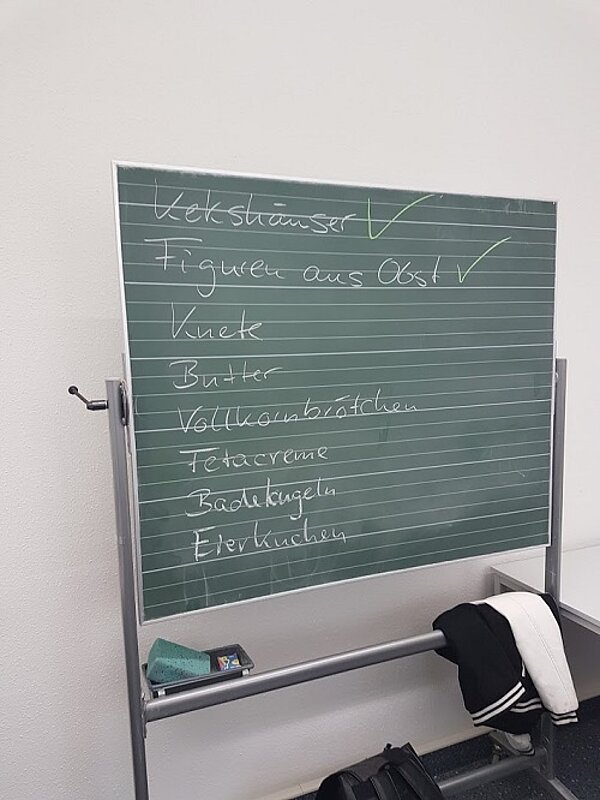 Kekshäuser ✓
Figuren aus Obst ✓
Knete
Butter
Vollkornbrötchen
Fetacreme
Badekugeln
Eierkuchen